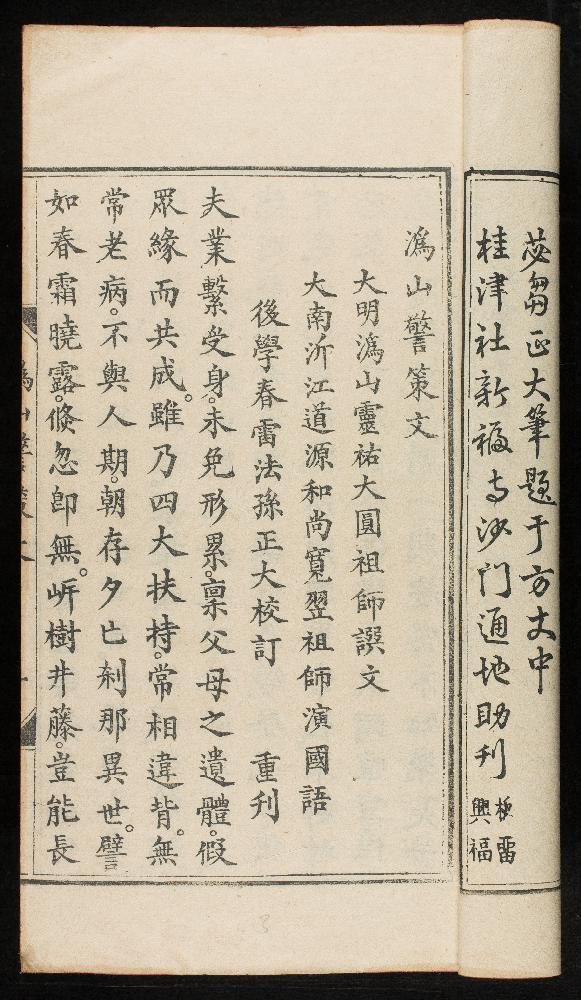 苾芻正大筆題于方丈中
桂津社新福寺沙门通地助刊 極雷 興福
溈山警策文
大明溈山靈祐大圓祖師譔文
大南沂江道源和尚寬翌祖師演國語
後學春雷法孫正大校訂 重刋
夫業繫受身。未免形累。稟父母之遺體。假
眾緣而共成。雖乃四大扶持。常相違背。無
常老病。不與人期。朝存夕亡。剎那異世。譬
如春霜曉露。倐忽即無。岍樹井藤。豈能長